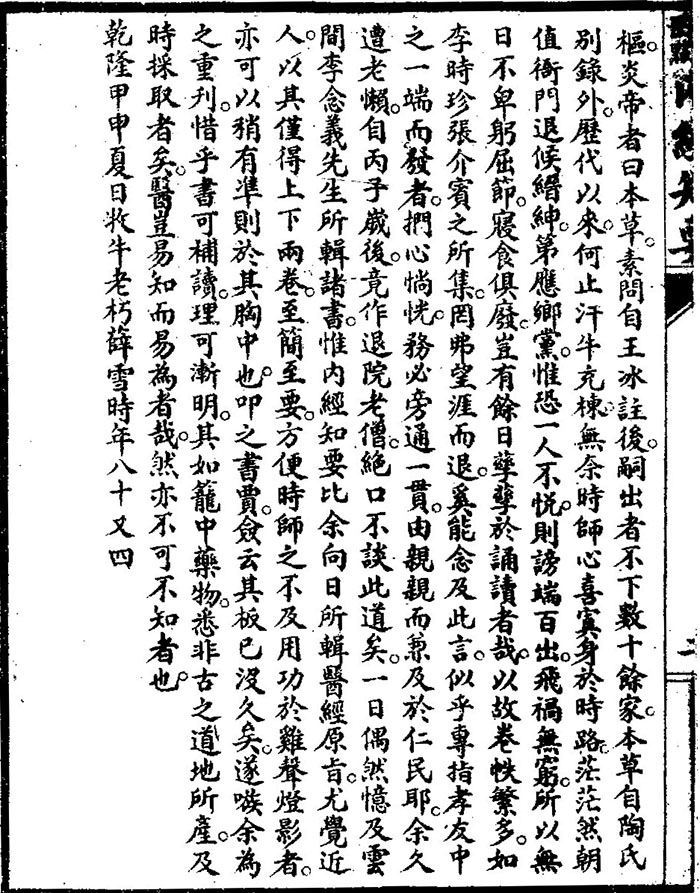 樞炎帝者曰本草素問自王冰註後嗣出者不下數十餘家本草自陶氏
別錄外歷代以來何止汗牛充棟無奈時師心喜寘身於時路茫茫然朝
值衙門退候縉紳第應鄉黨惟恐一人不悦則謗端百出飛禍無窮所以無
日不卑躬屈節寢食俱廢豈有餘日孳孳於誦讀者哉以故卷帙繁多如
李時珍張介賓之所集罔弗望涯而退奚能念及此言似乎專指孝友中
之一端而發者捫心惝恍務必旁通一貫由親親而兼及於仁民耶余久
遭老懶自丙子歲後竟作退院老僧絕口不談此道矣一日偶然憶及雲
間李念義先生所輯諸書惟內經知要比余向日所輯醫經原旨尤覺近
人以其僅得上下兩卷至簡至要方便時師之不及用功於雞聲燈影者
亦可以稍有準則於其胸中也叩之書賈僉云其板已沒久矣遂嗾余為
之重刊惜乎書可補讀理可漸明其如籠中藥物悉非古之道地所產及
時採取者矣醫豈易知而易為者哉然亦不可不知者也
乾隆甲申夏日牧牛老朽薛雪時年八十又四